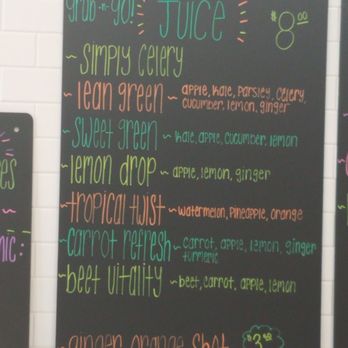 grab-n-go! JUICE $8.00
~ Simply Celery
~ lean green ~ apple, kale, parsley, celery,
cucumber, lemon, ginger
~ sweet green ~ kale, apple, cucumber, lemon
~ lemon drop ~ apple, lemon, ginger
~ tropical twist ~ watermelon, pineapple, orange
~ carrot refresh ~ carrot, apple, lemon, ginger
turmeric
~ beet vitality ~ beet, carrot, apple, lemon
ginger orange shot